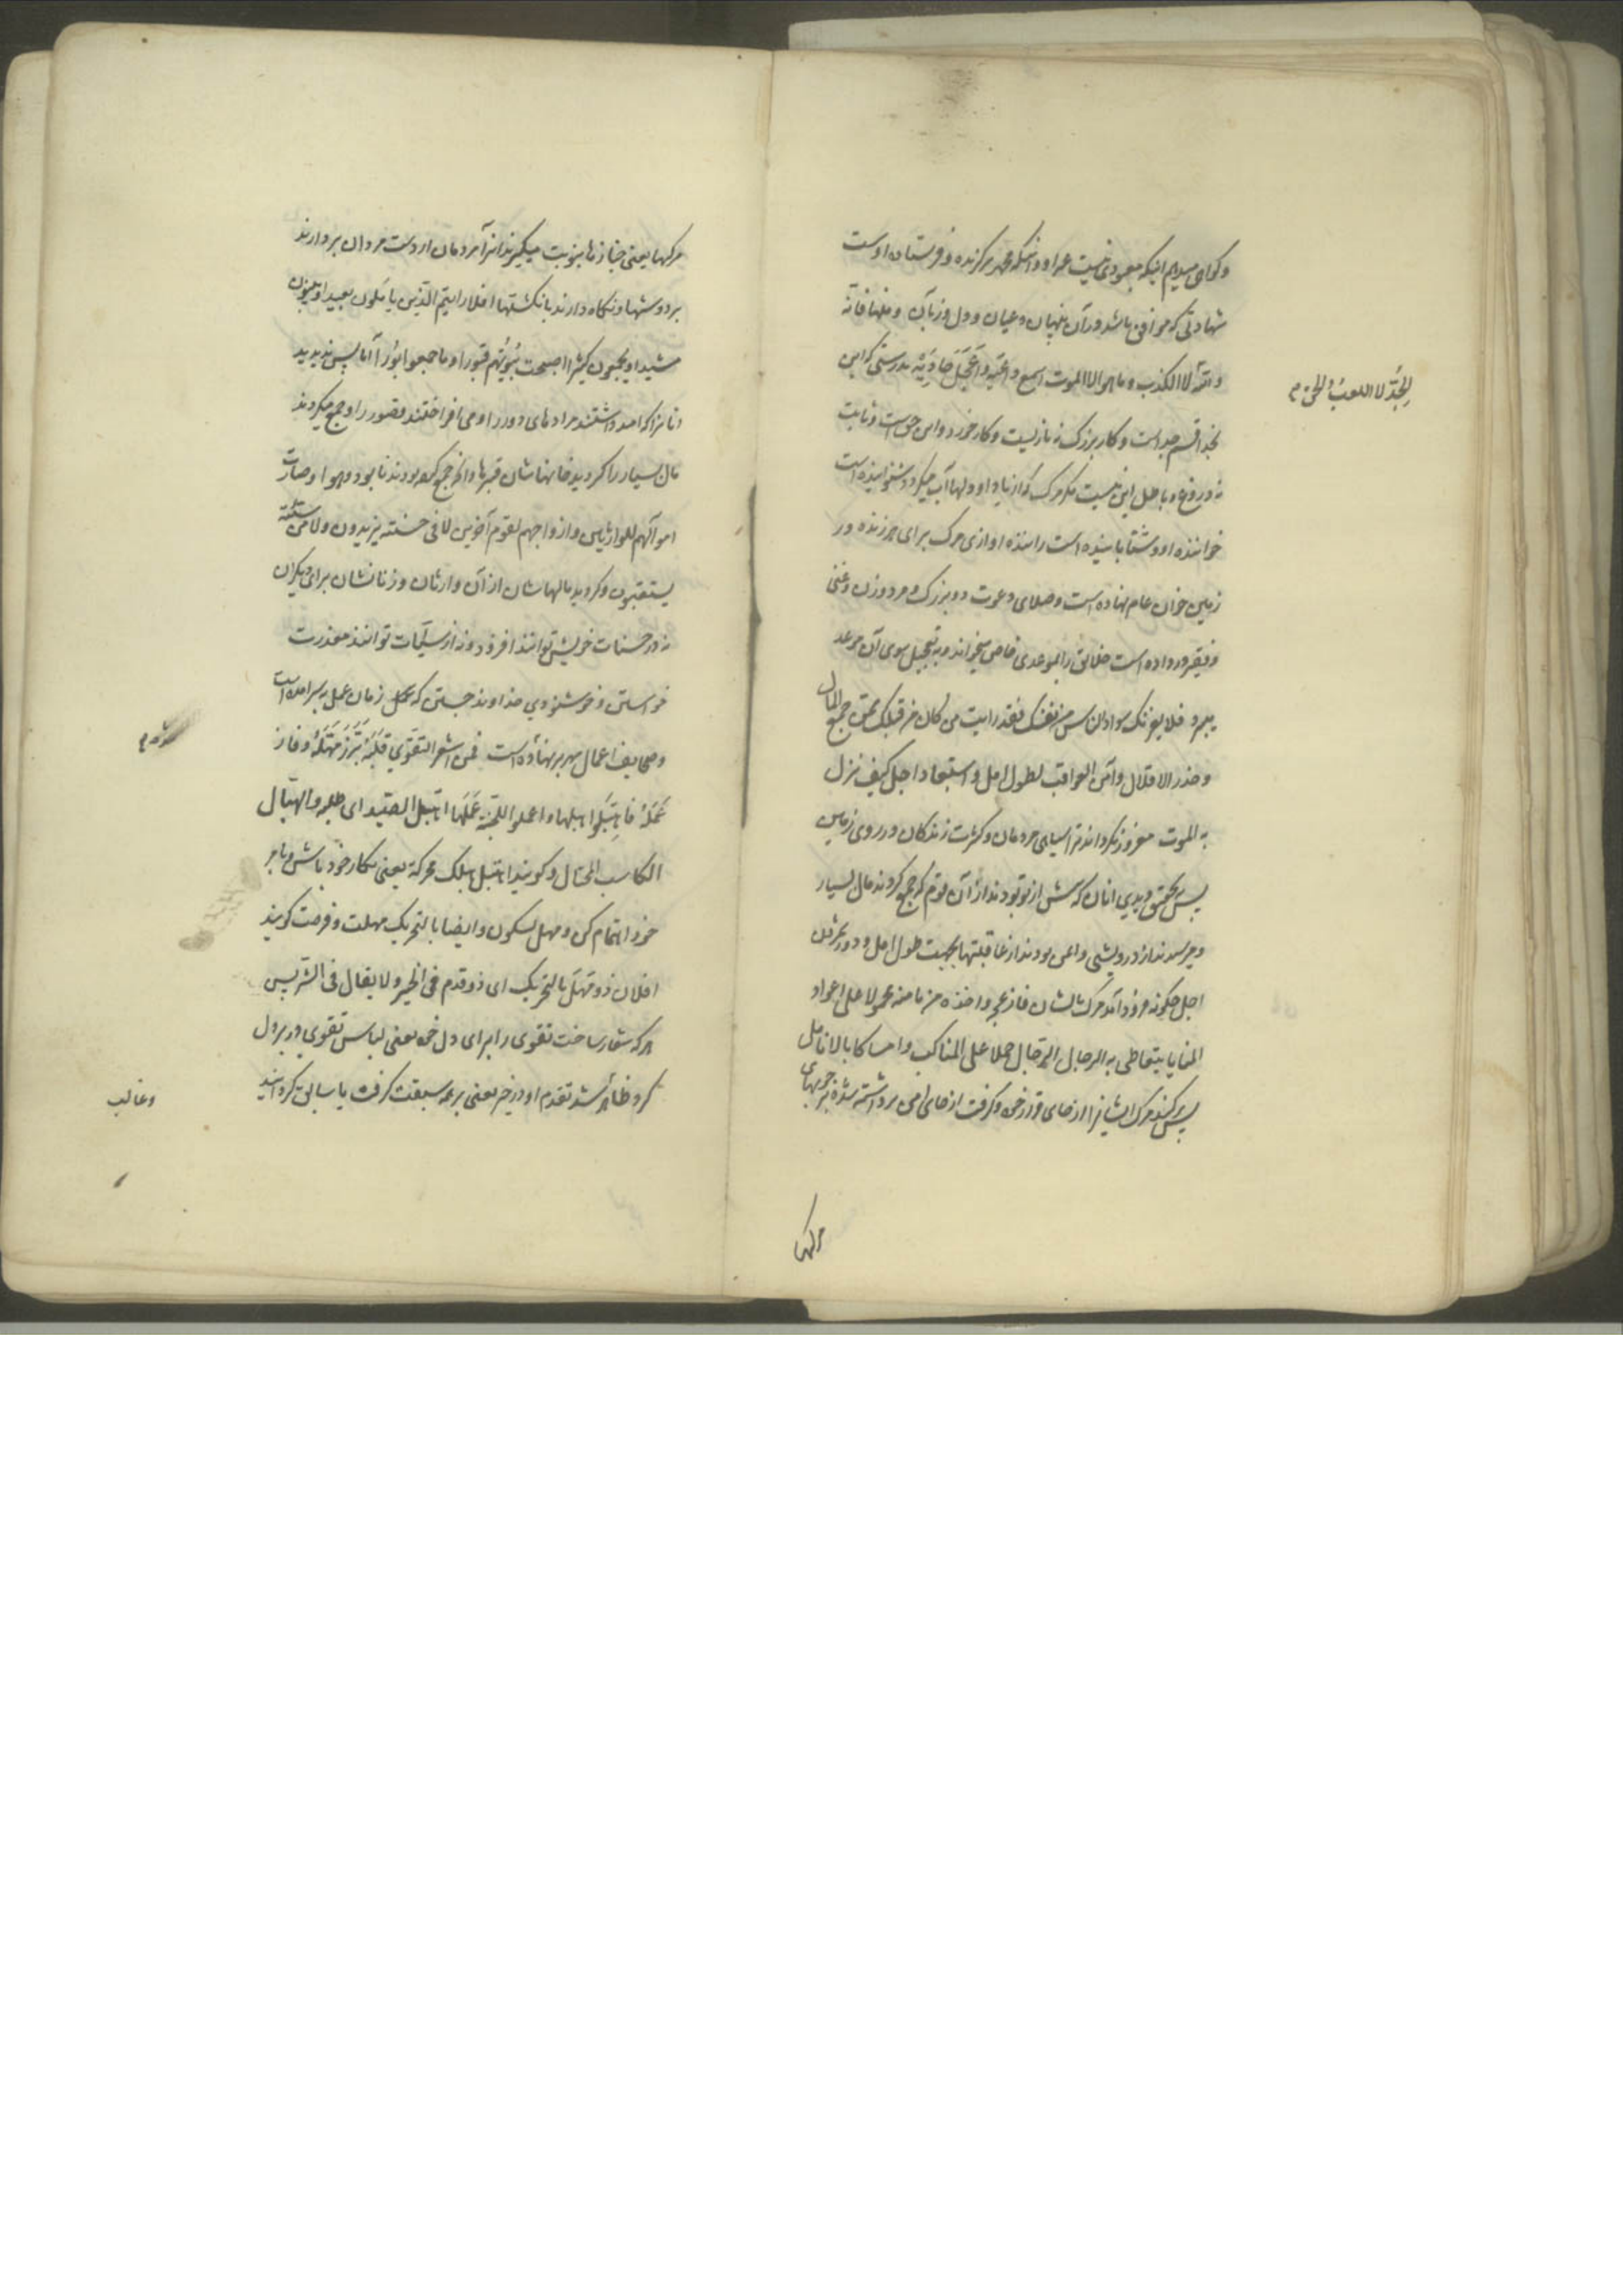 و گواهی میدهم اینکه معبودی نیست غیر او و انکه محمد برگزیده و فرستاده اوست
شهادتی که موافق باشد در آن پنهان و عیان و دل و زبان و منها فانه
والله لا الکذب و ما هو الا الموت اسمع داعیه و اعجل حادیه بدرستی که این
بخدا قسم جد است و کار بزرگ نه بازیست و کار خورد و این حق است و ثابت
نه دروغ و باطل این نیست مگر مرگ که از یاد او دلها آب میگردد شنوانیده است
خواننده او و شتابانیده است راننده او ازی مرگ برای هر زنده در
زمین خوان عام نهاده است و صلای دعوت در بزرگ و مرد و زن و غنی
و فقیر در داده است خلائق را بموعدی خاص میخواند و به تعجیل سوی آن موعد
میبرد فلا یغرنک سواد الناس من نفسک فقد رایت من کان من قبلک ممن جمع المال
و حذر الاقلال و امن العواقب لطول امل و استبعاد اجل کیف نزل
به الموت مغرور نگرداند ترا سیاهی مردمان و کثرت زندگان در روی زمین
پس بتحقیق دیدی انان که پیش از تو بودند از آن قوم که جمع کردند مال بسیار
و میرسیدند از درویشی و ایمن بودند از عاقبتها بجهت طول امل و دور شمردن
اجل چگونه فرود آمد مرگ بایشان فازعجه و اخذه من مامنه محمولا علی اعواد
المنایا یتعاطی به الرجال الرجال حملا علی المناکب و امساکا بالانامل
پس بر کند مرگ ایشانرا از جای قرار خود و گرفت از جای امن برداشته شده بر چوبهای
مرگها
الجد لا اللعب و الحق م
مرگها یعنی جنازها بنوبت میگیرند انرا مردمان از دست مردان بردارند
بر دوشها و نگاه دارند بانگشتها افلا رایتم الذین یاملون بعیدا و یبنون
مشیدا و یجمعون کثیرا اصبحت بیوتهم قبورا و ما جمعوا بورا آیا پس ندیدید
انانرا که امید داشتند مرادهای دور را و می افراختند قصور را و جمع میکردند
مال بسیار را گردید خانهاشان قبرها و انچه جمع کرده بودند نابود و هبوا و صارت
اموالهم للوارثین و ازواجهم لقوم آخرین لا فی حسنة یزیدون و لا من سیئة
یستعتبون و گردید مالهاشان از آن وارثان و زنانشان برای دیگران
نه در حسنات خویش توانند افزود و نه از سیئات توانند معذرت
خواستن و خوشنودی خداوند جستن که عمل زمان عمل بسر امده است
و صحایف اعمال مهر بر نهاده است فمن اشعر التقوی قلبه برز مهله و فاز
عمله فاهتبلوا هبلها و اعملوا للجنة عملها اهتبل الصید ای طلبه و الهبال
الکاسب المحتال و گویند اهتبل هبلک محرکة یعنی بکار خود باش و بامر
خود اهتمام کن و مهل بسکون و ایضا بالتحریک مهلت و فرصت گویند
افلان ذو مهل بالتحریک ای ذو تقدم فی الخیر و لا یقال فی الشر پس
هر که شعار ساخت تقوی را برای دل خود یعنی لباس تقوی در بر دل
کرد ظاهر شد تقدم او در خیر یعنی بر همه سبقت گرفت یا سابق گردانید
و غالب